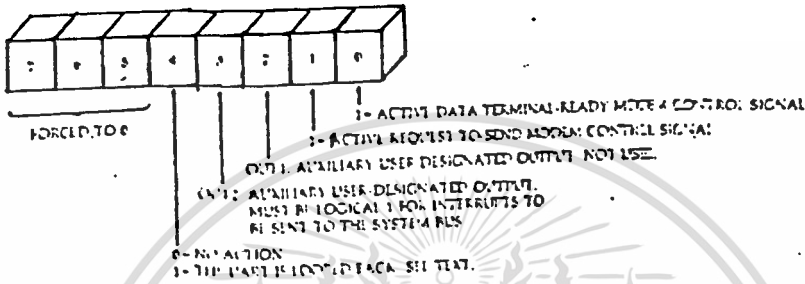 7 6 5 4 3 2 1 0
1- ACTIVE DATA TERMINAL-READY MODEM CONTROL SIGNAL
FORCED TO 0
1- ACTIVE REQUEST TO SEND MODEM CONTROL SIGNAL
OUT 1: AUXILIARY USER DESIGNATED OUTPUT NOT USED.
OUT 2: AUXILIARY USER-DESIGNATED OUTPUT.
MUST BE LOGICAL 1 FOR INTERRUPTS TO
BE SENT TO THE SYSTEM BUS
0- NO ACTION
1- THE UART IS LOOPED BACK. SEE TEXT.